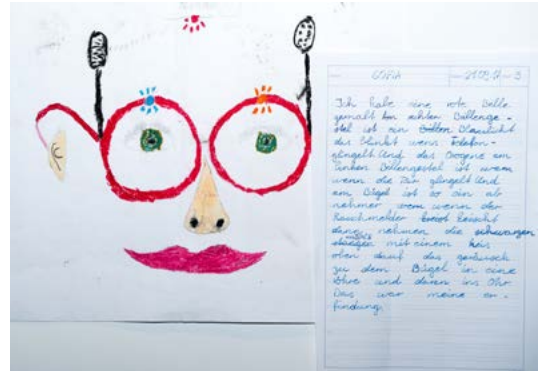 SOFIA 21.09.17 S
Ich habe eine rote Belle
gemalt am rechten Bellenge-
stel ist ein Blaulicht
das Blinkt wens Telefon-
glingelt Und das Orogene am
linken Bellengestel ist wenn
wenn die Tür glingelt Und
am Bügel ist so ein ab
nehmer wenn der
Rauchmelder kreischt
dann nehmen die schwarzen
mit einem kreis
oben drauf das geräusch
zu dem Bügel in eine
Röhre und dann ins Ohr
Das war meine er-
findung.